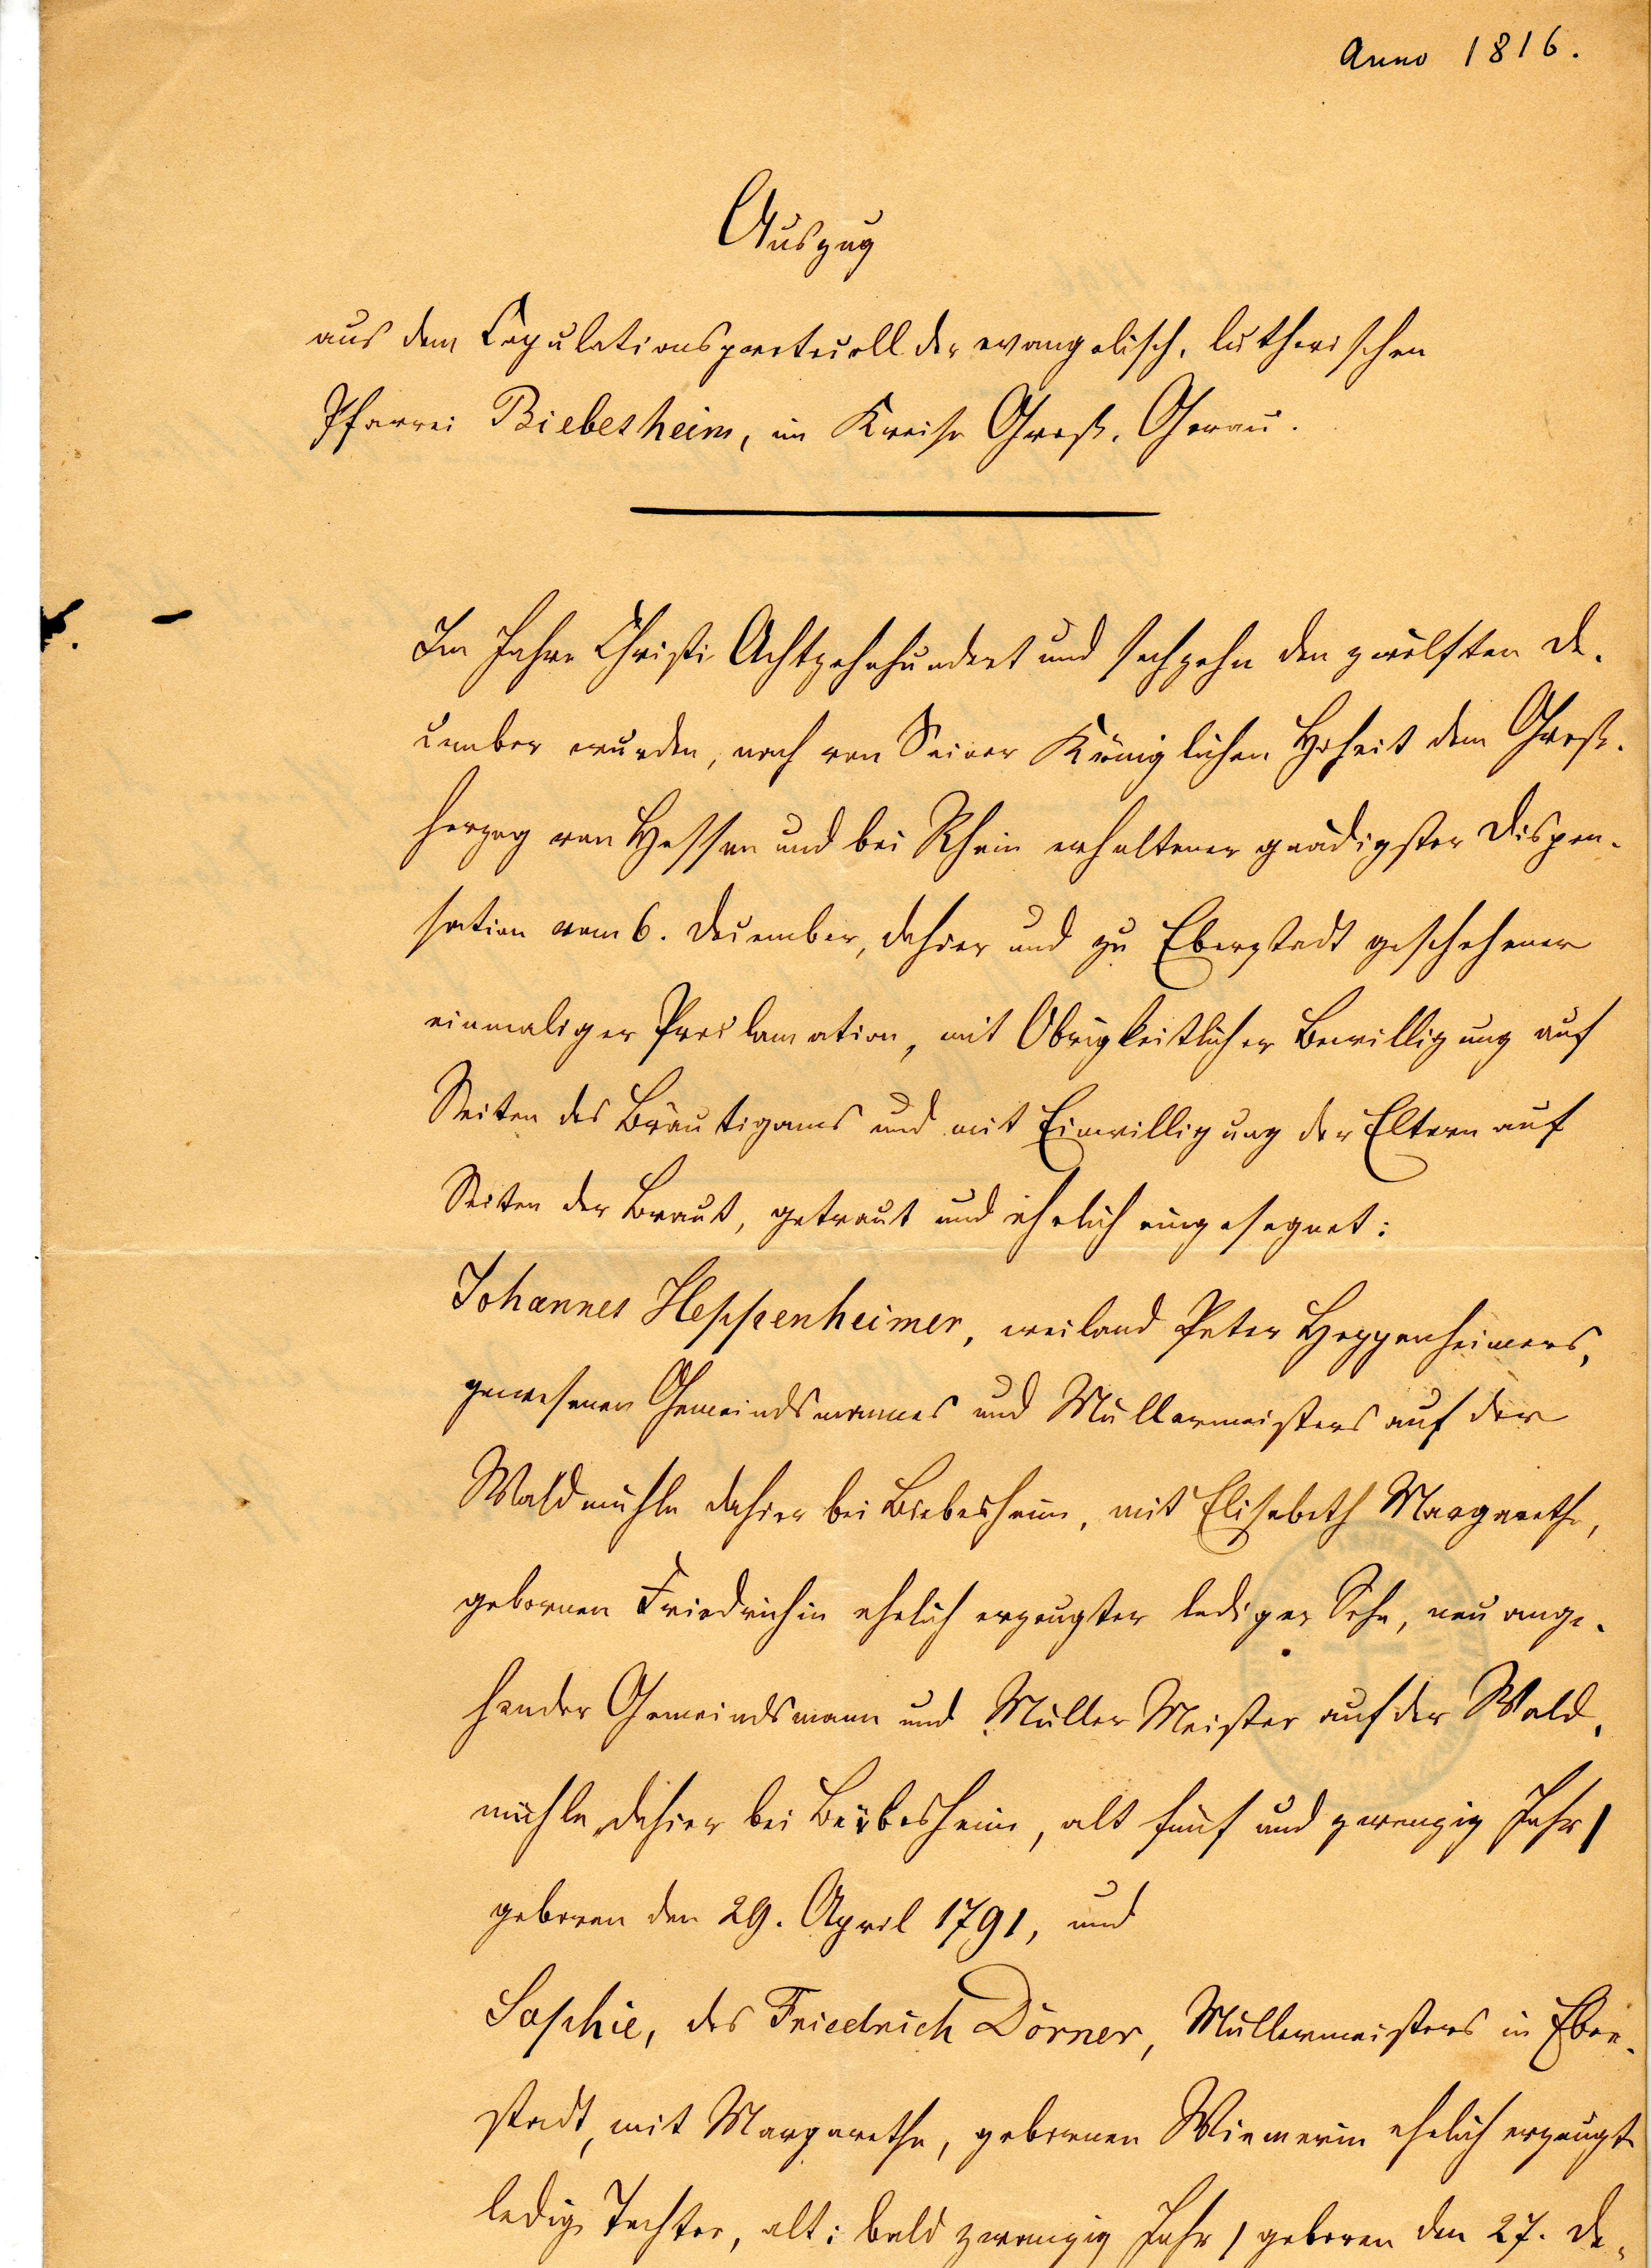 Anno 1816.
Auszug
aus dem Copulationsprotocoll der evangelisch-lutherischen
Pfarrei Biebesheim, im Kreise Groß-Gerau.
Im Jahre Christi Achtzehnhundert und sechzehn den zwölften De-
cember wurden, nach von Seiner Königlichen Hoheit dem Groß-
herzog von Hessen und bei Rhein erhaltener gnädigster Dispen-
sation vom 6. December, dahier und zu Eberstadt geschehener
einmaliger Proclamation, mit Obrigkeitlicher Bewilligung auf
Seiten des Bräutigams und mit Einwilligung der Eltern auf
Seiten der Braut, getraut und ehelich eingesegnet:
Johannes Heppenheimer, weiland Peter Heppenheimers,
gewesenen Gemeindsmannes und Müllermeisters auf der
Waldmühle dahier bei Biebesheim, mit Elisabeth Margarethe,
gebornen Friedrichin ehelich erzeugter lediger Sohn, neu ange-
hender Gemeindsmann und Müller Meister auf der Wald-
mühle dahier bei Biebesheim, alt fünf und zwanzig Jahr /
geboren den 29. April 1791, und
Sophie, des Friedrich Dörner, Müllermeisters in Eber-
stadt, mit Margarethe, gebornen Wiemerin ehelich erzeugte
ledige Tochter, alt: bald zwanzig Jahr / geboren den 27. De-